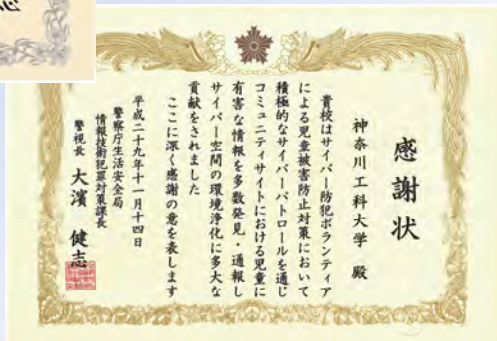 感謝状
神奈川工科大学 殿
貴校はサイバー防犯ボランティア
による児童被害防止対策において
積極的なサイバーパトロールを通じ
コミュニティサイトにおける児童に
有害な情報を多数発見・通報し
サイバー空間の環境浄化に多大な
貢献をされました
ここに深く感謝の意を表します
平成二十九年十一月十四日
警察庁生活安全局
情報技術犯罪対策課長
警視長 大濱 健志